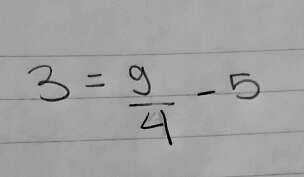 3 = 9/4 - 5